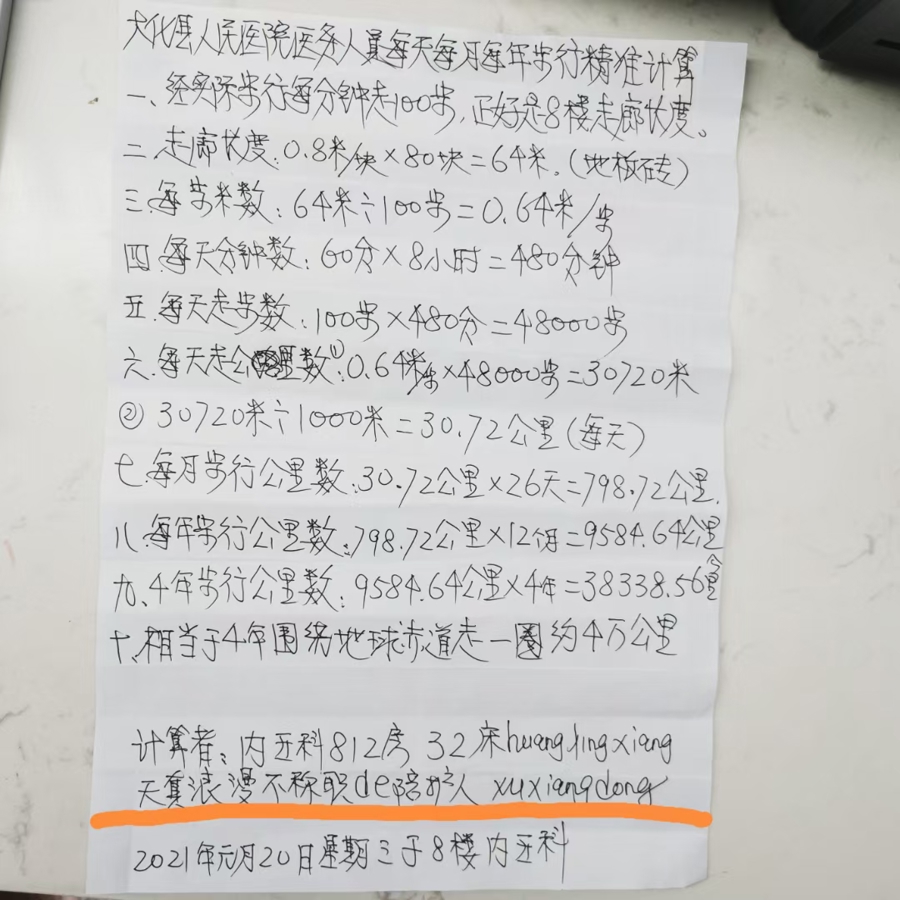 大化县人民医院医务人员每天每月每年步行精准计算
一、经实际步行每分钟走100步,正好是8楼走廊长度。
二.走廊长度:0.8米/块×80块=64米.(地板砖)
三.每步米数:64米÷100步=0.64米/步
四.每天分钟数:60分×8小时=480分钟
五.每天走步数:100步×480分=48000步
六.每天走公里数:(1)0.64米/步×48000步=30720米
② 30720米÷1000米=30.72公里(每天)
七.每月步行公里数:30.72公里×26天=798.72公里.
八.每年步行公里数:798.72公里×12个月=9584.64公里
九、4年步行公里数:9584.64公里×4年=38338.56公里
十.相当于4年围绕地球赤道走一圈约4万公里
计算者:内五科812房 32床huanglingxiang
天真浪漫不称职de陪护人 xuxiangdong
2021年元月20日星期三于8楼内五科